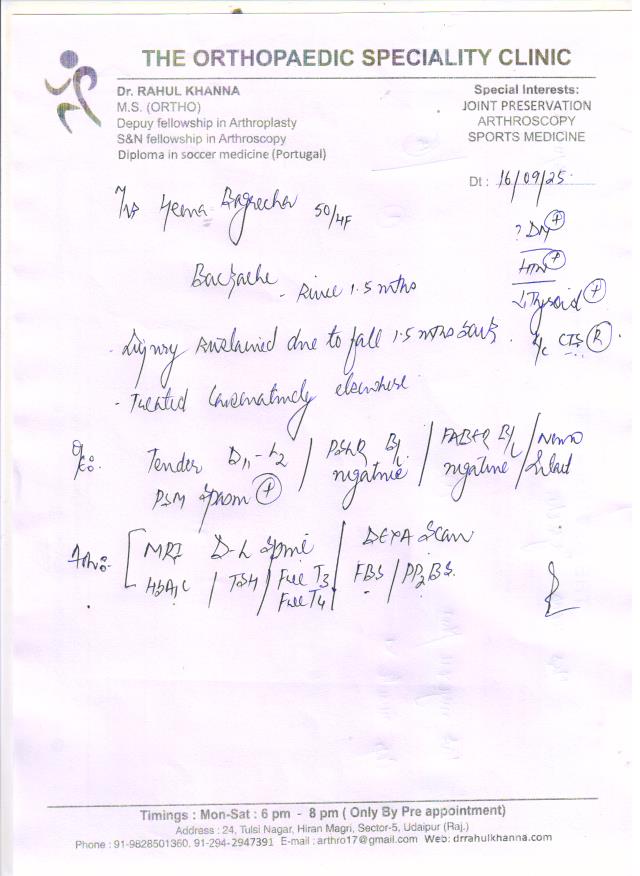 THE ORTHOPAEDIC SPECIALITY CLINIC
Dr. RAHUL KHANNA
M.S. (ORTHO)
Depuy fellowship in Arthroplasty
S&N fellowship in Arthroscopy
Diploma in soccer medicine (Portugal)
Special Interests:
JOINT PRESERVATION
ARTHROSCOPY
SPORTS MEDICINE
Dt : 16/09/25
Mrs 50/F
? DM +
HTN +
Thyroid +
CTS R
Backache
- Since 1.5 mths
- Injury sustained due to fall 1.5 mths back.
- Treated conservatively elsewhere
Tender D11-L2 / PSLR B/L negative / FABER B/L negative / Neuro Intact
PSM spasm +
Adv:- MRI D-L Spine / DEXA Scan
HbA1C / TSH / Free T3 / FBS / PP2BS.
Free T4
Timings : Mon-Sat : 6 pm - 8 pm ( Only By Pre appointment)
Address : 24, Tulsi Nagar, Hiran Magri, Sector-5, Udaipur (Raj.)
Phone : 91-9828501360, 91-294-2947391 E-mail : arthro17@gmail.com Web: drrahulkhanna.com